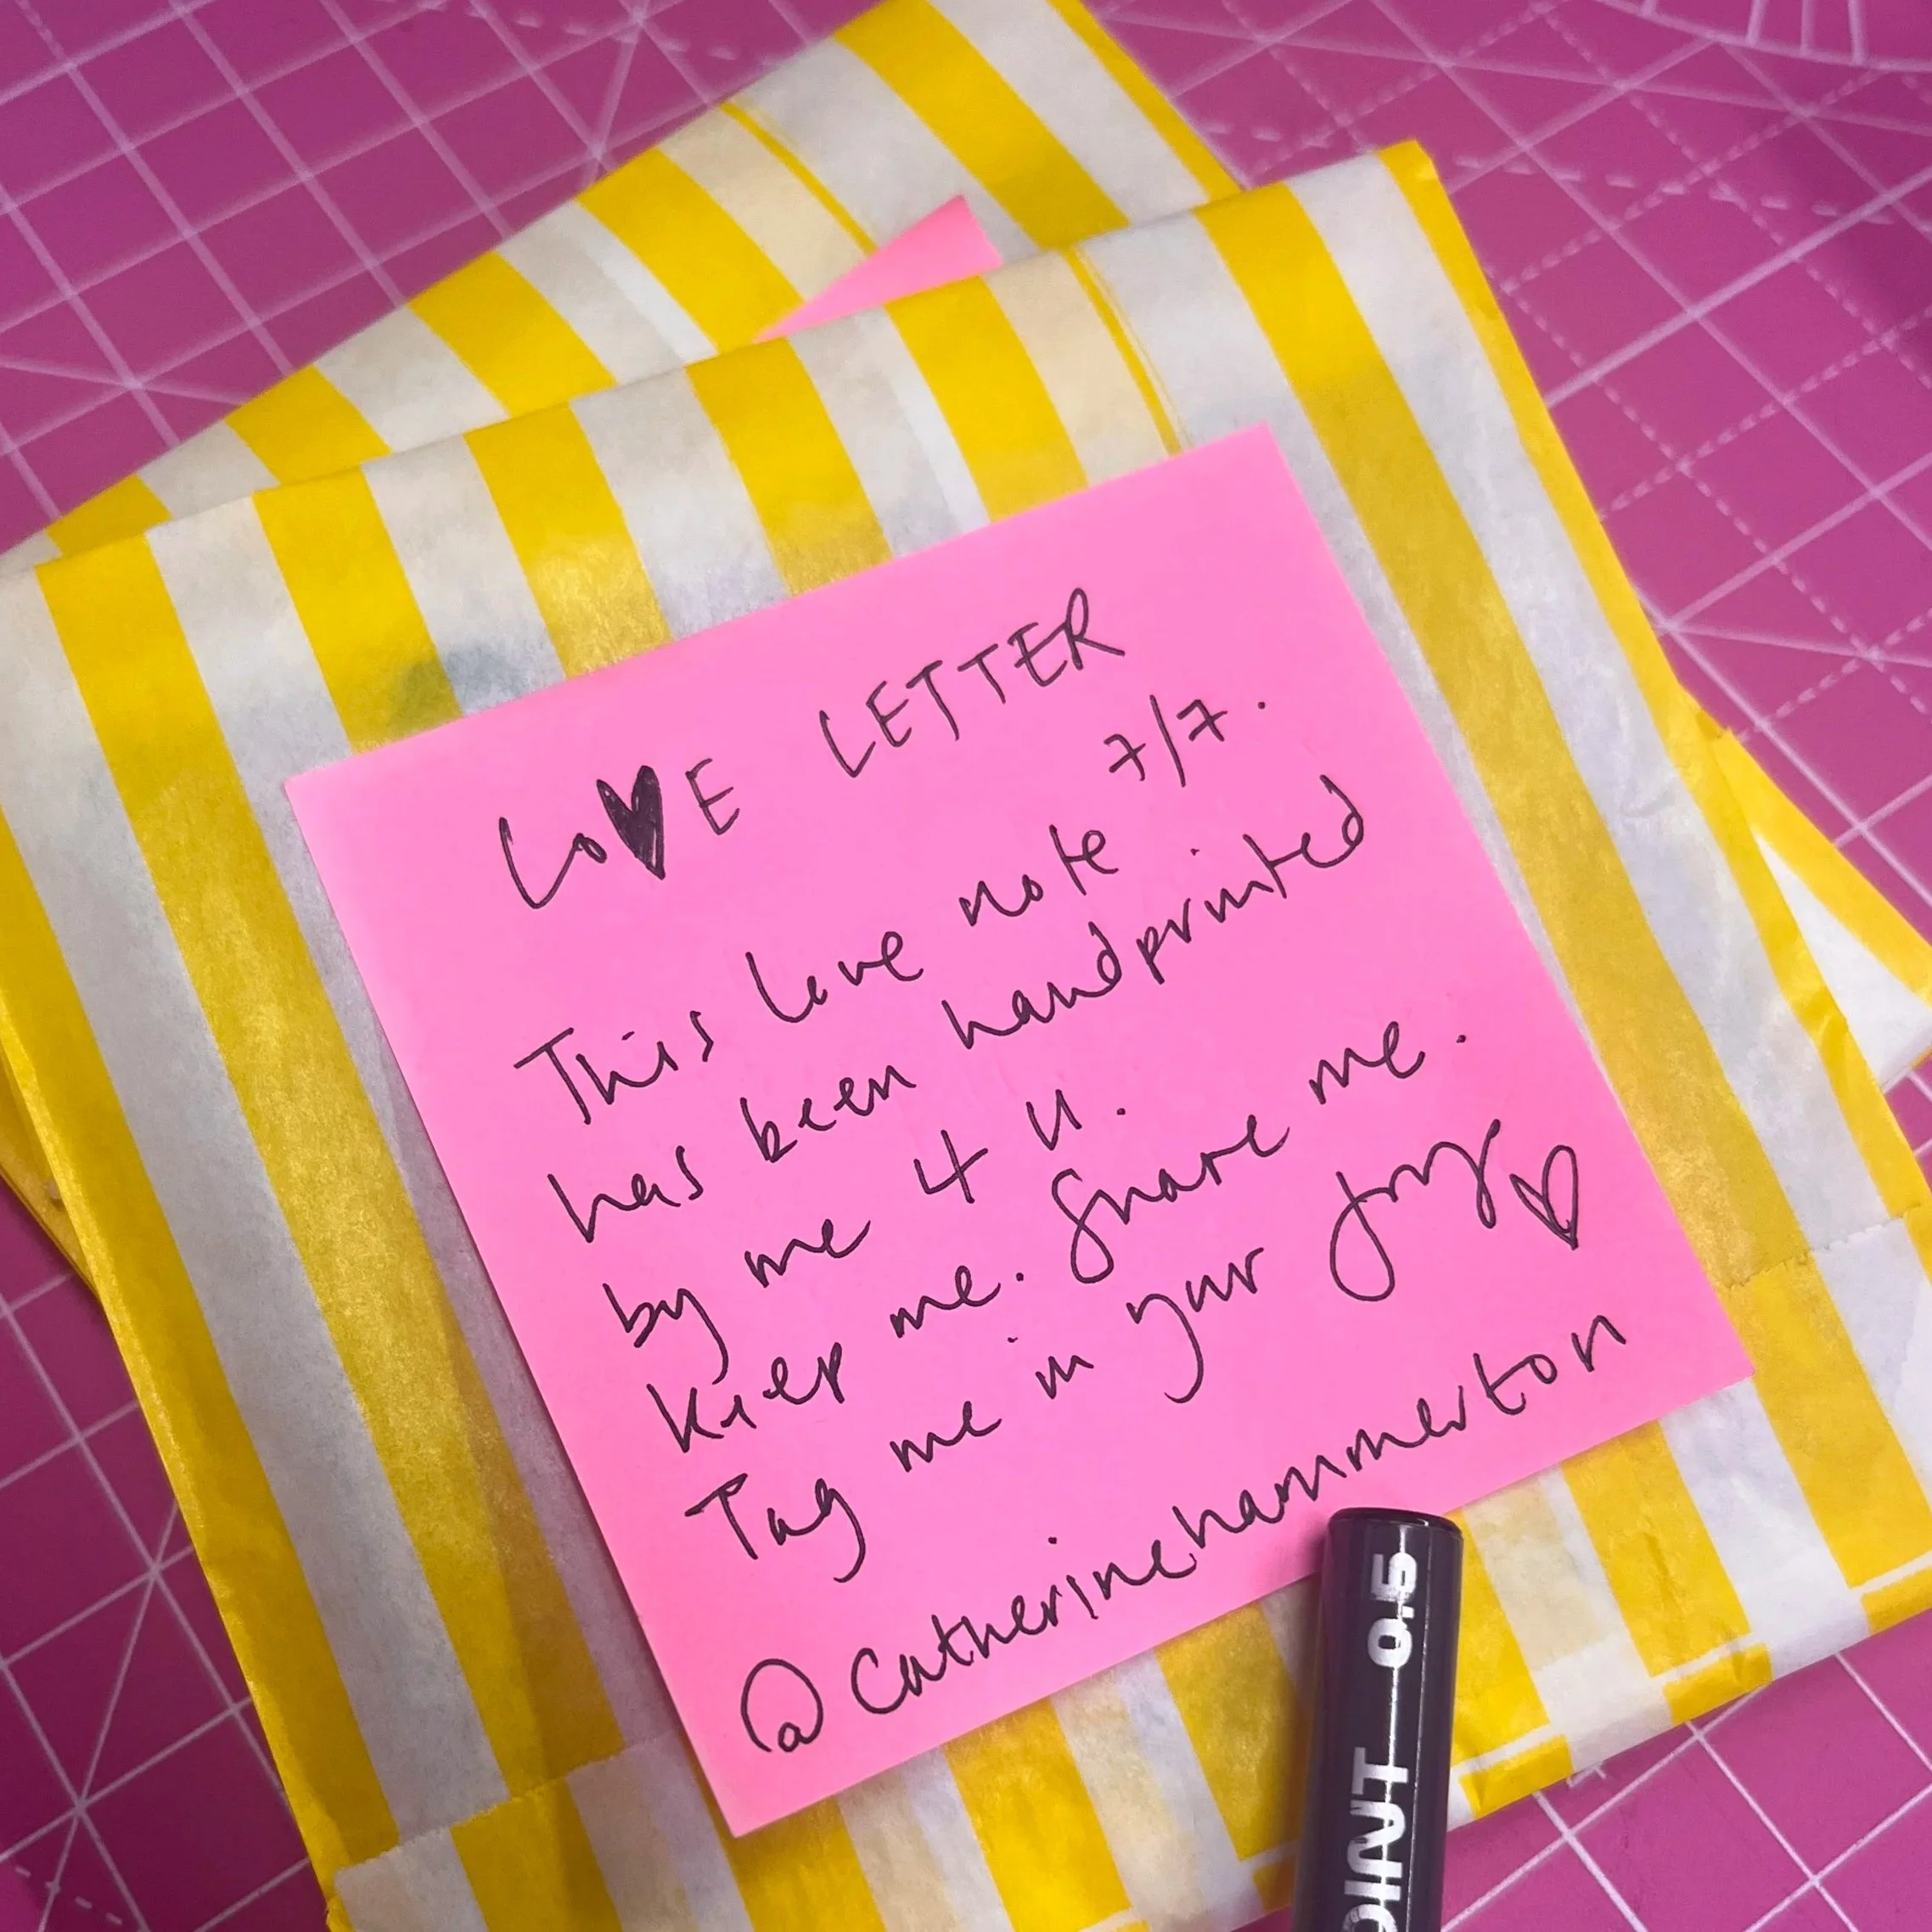 LO♥E LETTER
7/7.
This love note
has been handprinted
by me 4 U.
Keep me. Share me.
Tag me in your joy ♡
@catherinehammerton
0.5